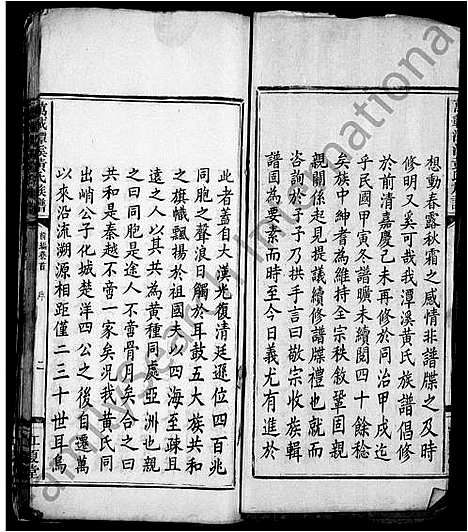 想動春露秋霜之感情非譜牒之及時
修明又奚可哉我潭溪黃氏族譜倡修
於前清嘉慶己未再修於同治甲戌迄
乎民國甲寅冬譜曠未續閱四十餘稔
矣族中紳耆為維持全宗秩敘鞏固親
親關係起見提議續修譜牒禮也就而
咨詢於予予乃拱手言曰敬宗收族輯
譜固為要素而時至今日義尤有進於
此者蓋自大漢光復清廷遜位四百兆
同胞之聲浪日觸於耳鼓五大族共和
之旗幟飄揚於祖國夫以四海至疎且
遠之人以其共為黃種同處亞洲也親
之曰同胞是途人不啻骨月矣合之曰
共和是秦越不啻一家矣況我黃氏同
出峭公子化城楚洋四公之後自遷萬
以來沿流溯源相距僅二三十世耳烏
萬載潭溪黃氏族譜
卷首
序
二
江夏堂